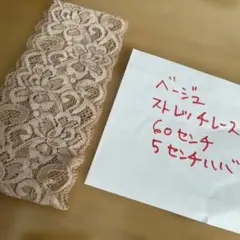 ベージュ
ストレッチレース
60センチ
5センチハバ